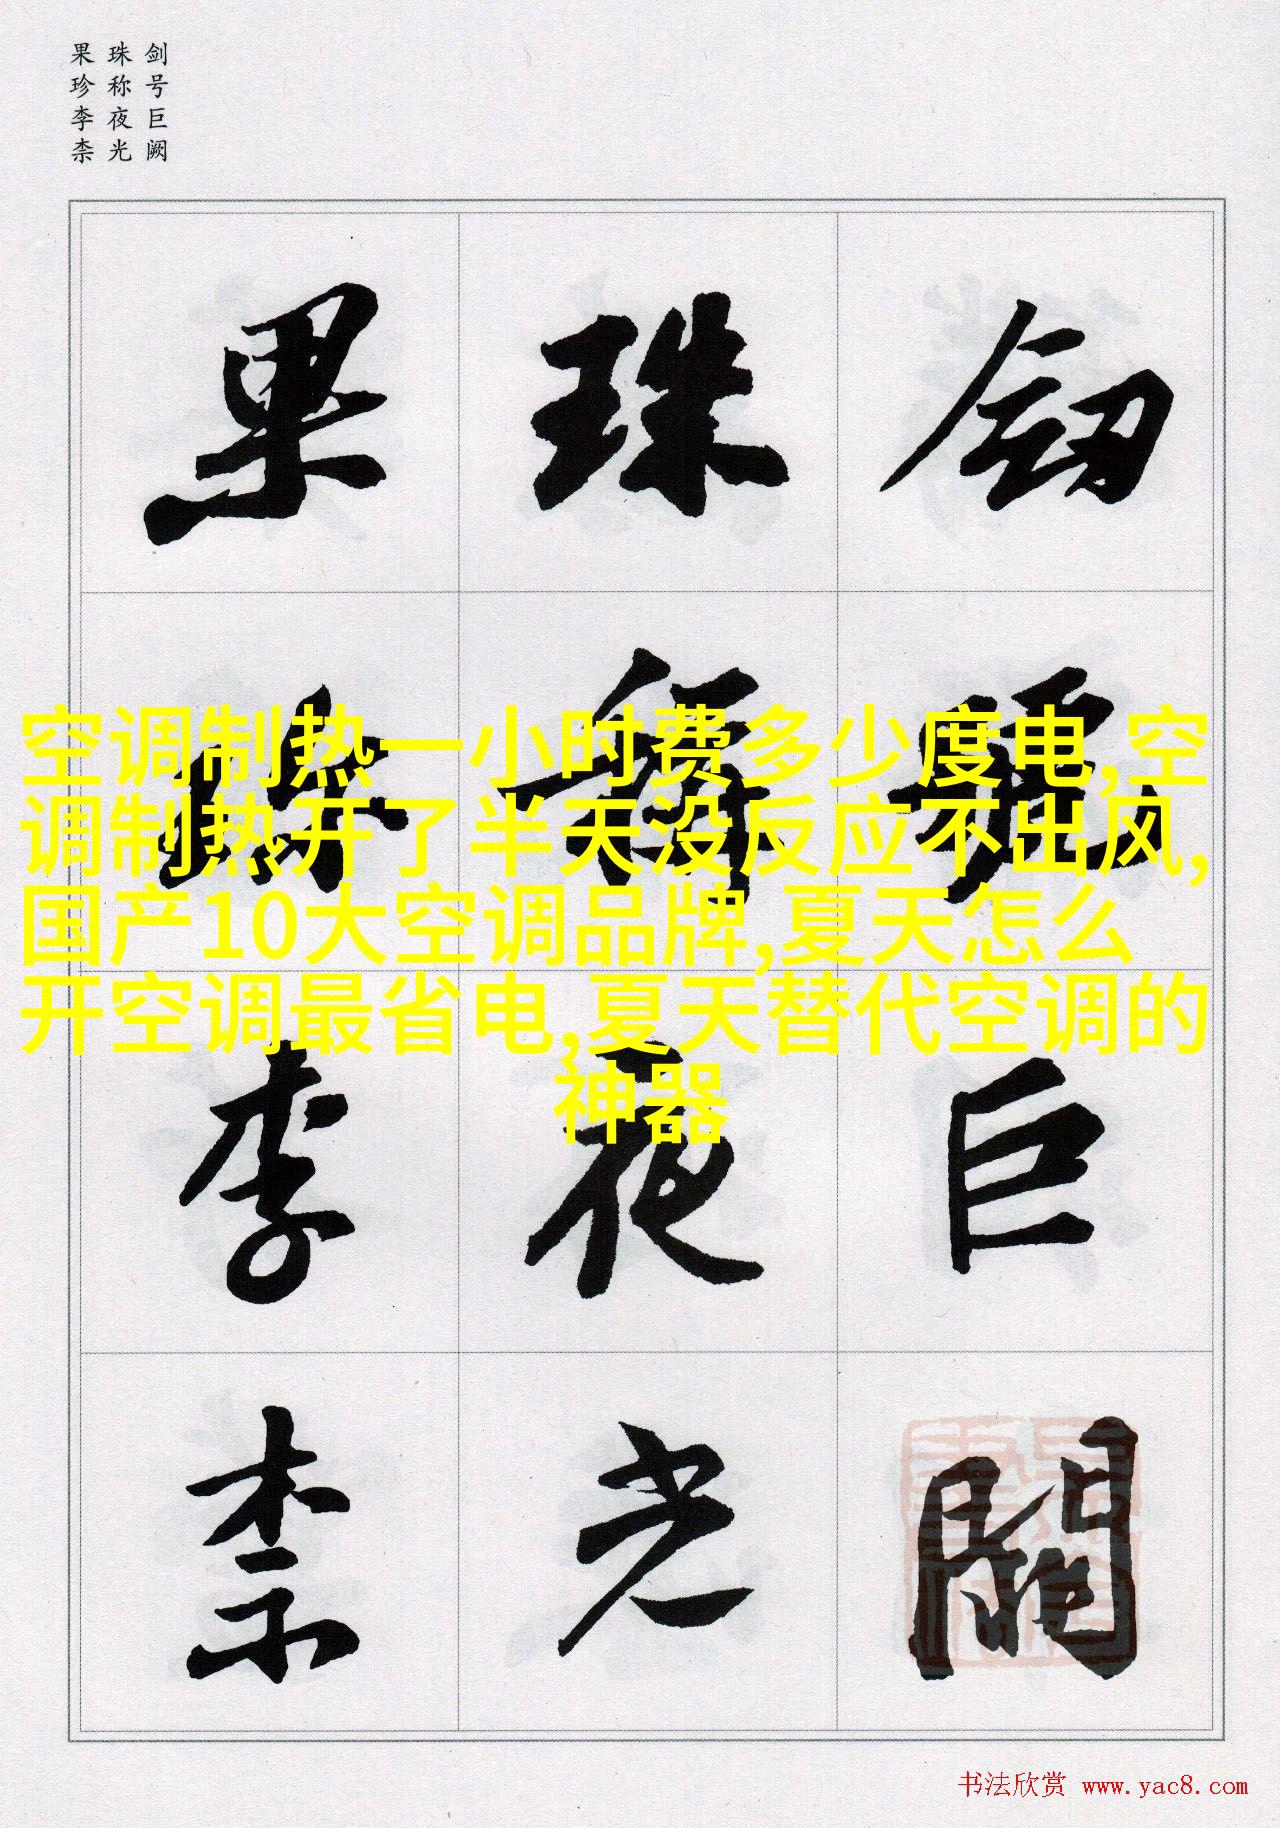 剑号巨阙
珠称夜光
果珍李柰
釼號巨闕
珠稱夜光
果珍李柰
空调制热一小时费多少度电,空
调制热开了半天没反应不出风,
国产10大空调品牌,夏天怎么
开空调最省电,夏天替代空调的
神器
书法欣赏 www.yac8.com